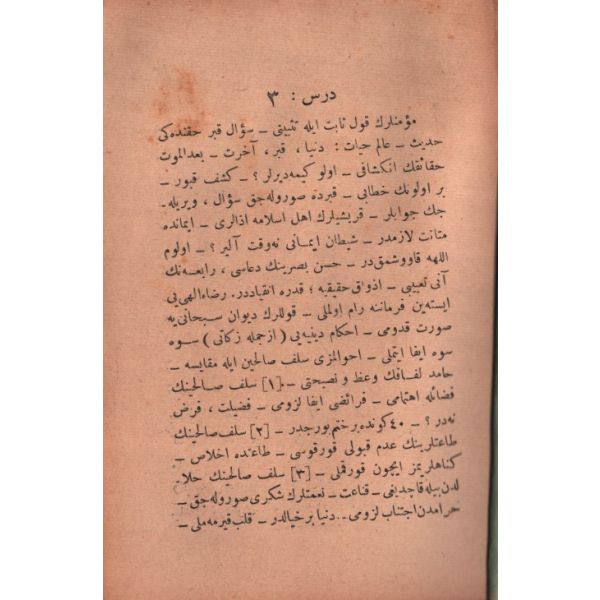 درس : ٣
مؤمنلرك قول ثابت ايله تثبيتى ــ سؤال قبر حقنده‌كى
حديث ــ عالم حيات : دنيا ، قبر ، آخرت ــ بعدالموت
حقائقك انكشافى ــ اولو كيمه‌ديرلر ؟ ــ كشف قبور ــ
بر اولونك خطابى ــ قبرده صوروله‌جق سؤال ، ويريله‌ـ
جك جوابلر ــ قريشيلرك اهل اسلامه اذالرى ــ ايمانده
متانت لازمدر ــ شيطان ايمانى نه‌وقت آلير ؟ ــ اولوم
اللهه قاووشمق‌در ــ حسن بصرينك دعاسى ، رابعه‌نك
آنى تعييبى ــ اذواق حقيقيه ؛ قدره انقياددر. رضاءالهى‌يى
ايسته‌ين فرماننه رام اولملى ــ قوللرك ديوان سبحانى‌يه
صورت قدومى ــ احكام دينيه‌يى ( ازجمله زكاتى ) سوه
سوه ايفا ايتملى ــ احوالمزى سلف صالحين ايله مقايسه ــ
حامد لفافك وعظ و نصيحتى ــ [١] سلف صالحينك
فضائله اهتمامى ــ فرائضى ايفا لزومى ــ فضيلت ، فرض
نه‌در ؟ ــ ٤٠ كونده برختم بورجدر ــ [٢] سلف صالحينك
طاعتلرينك عدم قبولى قورقوسى ــ طاعتده اخلاص ــ
كناهلريمز ايچون قورقملى ــ [٣] سلف صالحينك حلاـ
لدن بيله قاچديغى ــ قناعت ــ نعمتلرك شكرى صوروله‌جق ــ
حرامدن اجتناب لزومى .. دنيا بر خيالدر ــ قلب قيرمه‌ملى ــ